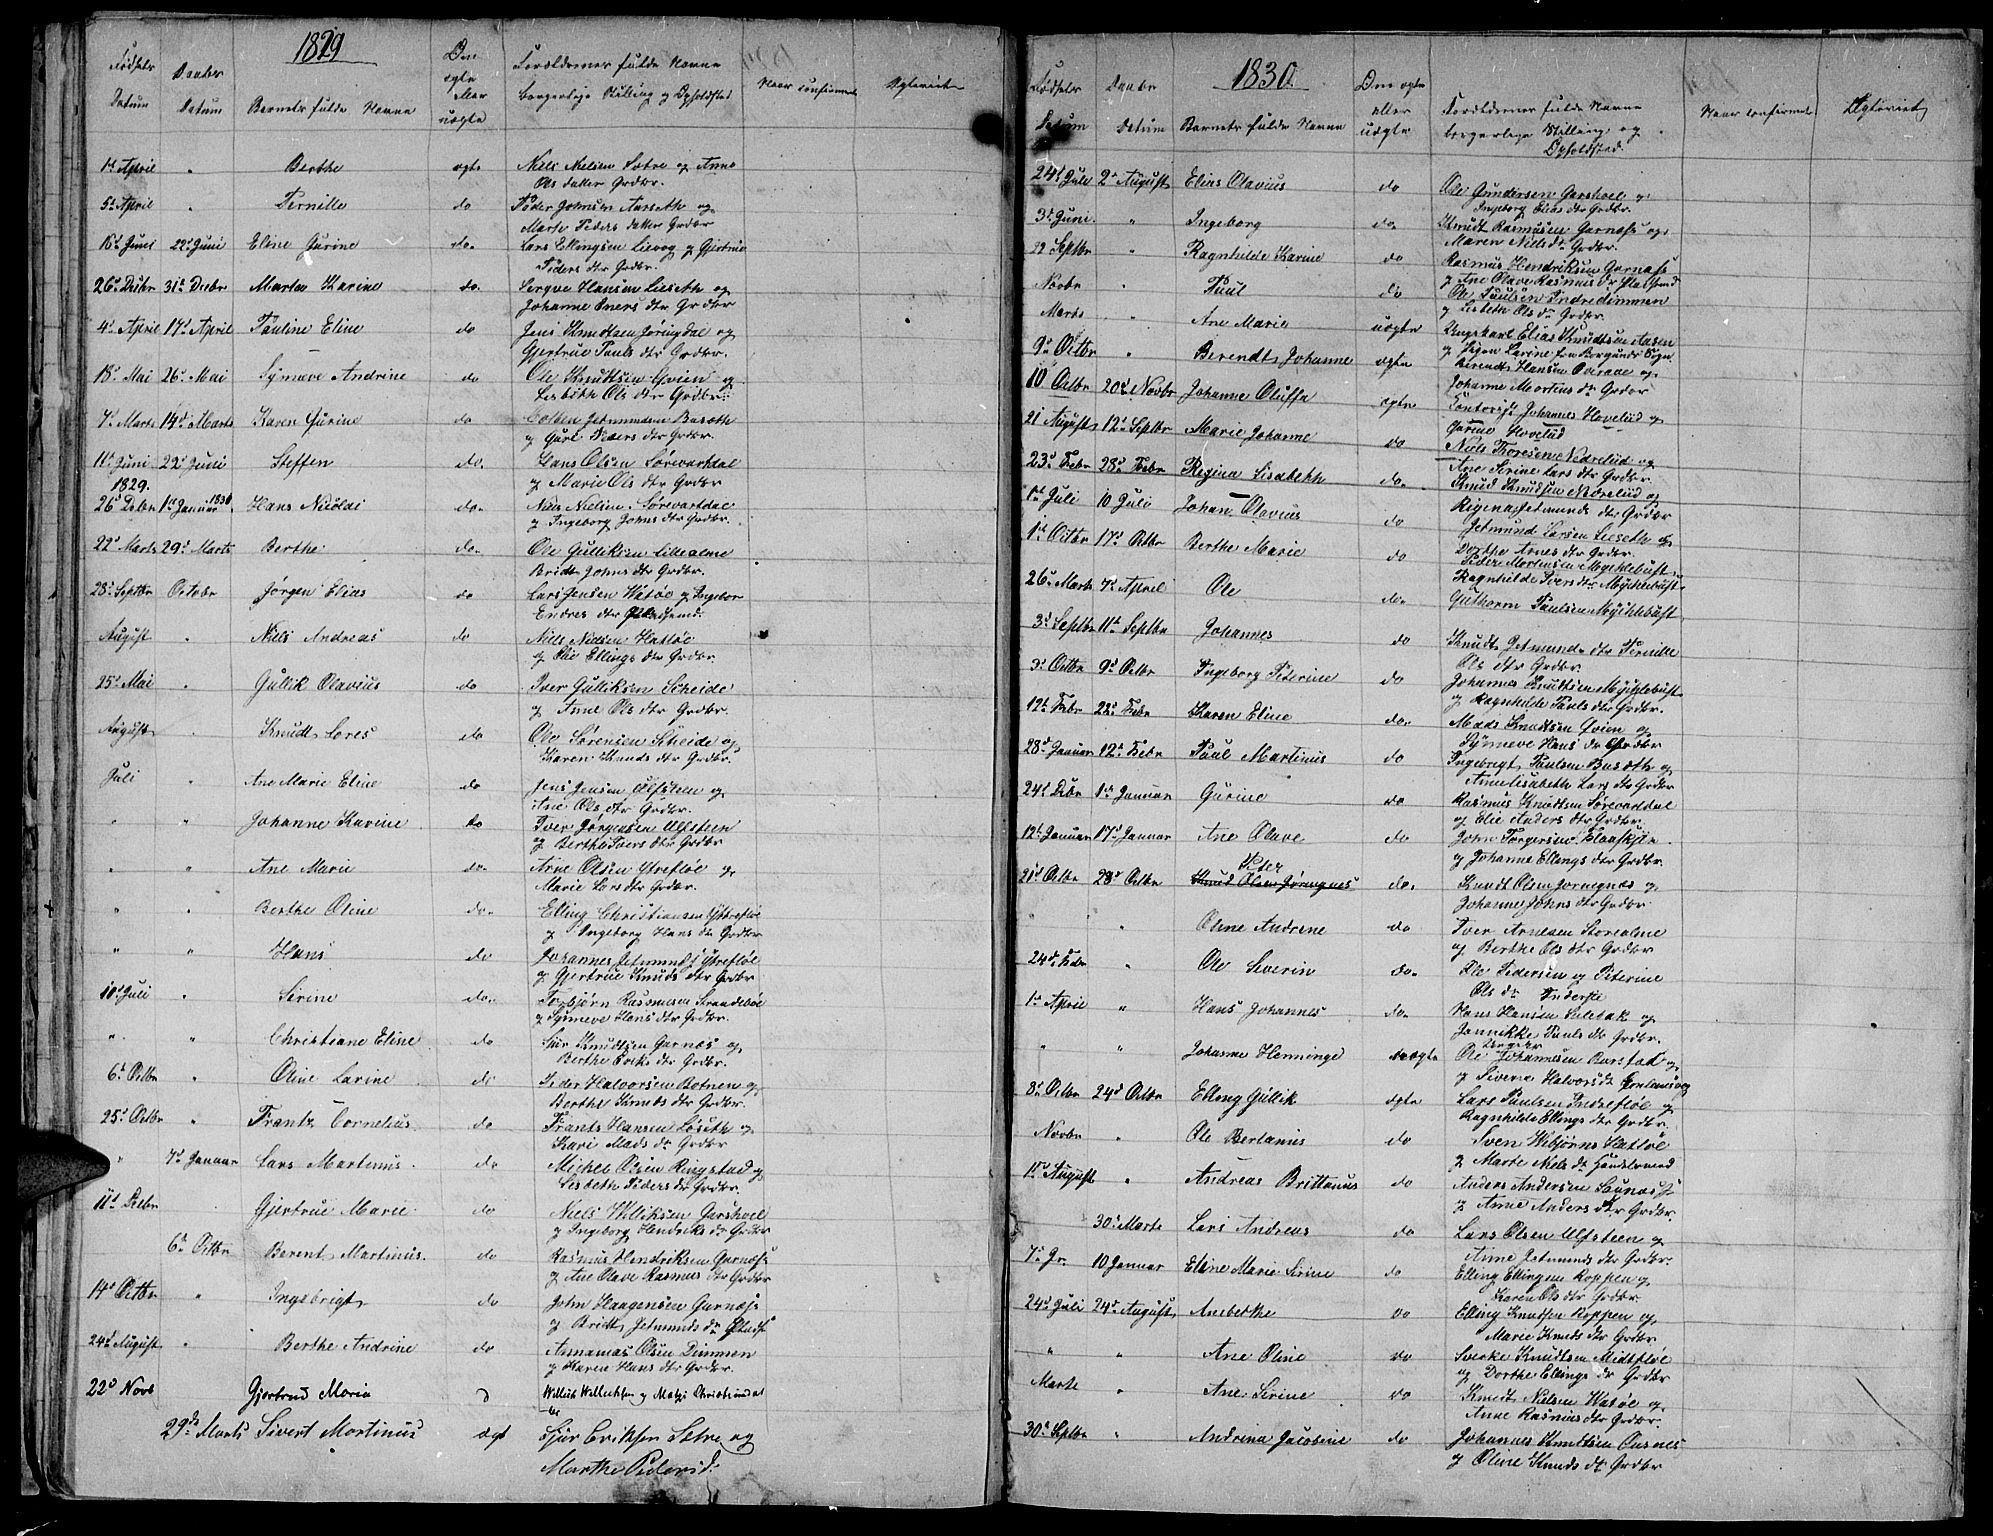 1829
Fødsels Datum
Daabs Datum
Barnets fulde Navne
Om ægte eller uægte
Forældrenes fulde Navne
borgerlige Stilling og Opholdsted
Naar confirmeret
1st April " Berthe ægte Niels Nielsen Sætre og Anne
Ols datter Grdbr.
5t April " Pernille do Peder Johnsen Aarseth og
Marte Peders datter Grdbr
15d Juni 22d Juni Eline Gurine do. Lars Ellingsen Lievog og Gjertrue
Peders dtr Grdbr.
26d Debr 31d Debr Marta Karine do. Hansen Lieseth og
Johanne Ivers dtr Grdbr
4d April 17d April Pauline Eline do Jens Knudtsen Jøringdal og
Gjertrue Pauls dtr Grdbr.
18d Mai 26d Mai Synneve Andrine do Ole Knudtsen Øvien og
Lisbeth Ols dtr Grdbr.
7d Marts 14d Marts Karen Gurine do Jetmundsen Baseth
og Guri Peders dtr Grdbr.
11d Juni 22d Juni Steffen do. Hans Olsen Sørevartdal
og Marie Ols dtr Grdbr
1829.
26d Debr 1st Januar 1830. Hans Nicolai do. Niels Nielsen Sørevartdal
og Ingeborg Johns dtr Grdbr.
22d Marts 29d Marts Berthe do. Ole Gulliksen Lillealme
Bridt Johns dtr Grdbr.
28d Septbr October Jørgen Elias do Lars Jensen Watøe og Ingebor
Endres dtr
August " Niels Andreas do Niels Nielsen Hatløe
og Olie Ellings dtr Grdbr.
25d Mai " Gullik Olavius do Iver Gulliksen Scheide
og Anne Ols dtr Grdbr.
August Knudt Lores do Ole Sørensen Scheide og
Karen Knuds dtr Grdbr.
Juli " Ane Marie Eline do Jens Jensen Ulfsteen og
Ane Ols dtr Grdbr.
" " Johanne Karine do Iver Jørgensen Ulfsteen
og Berthe Ivers dtr Grdbr.
" " Ane Marie do. Arne Olsen Ytrefløe og
Marie Lars dtr Grdbr.
" " Berthe Oline do. Elling Christiansen Yttrefløe
og Ingeborg Hans dtr Grdbr
" " Hans do Johannes Jetmundsen Ytrefløe
og Gjertrue Knuds dtr Grdbr
10d Juli " Sirine do. Torbjørn Rasmusen Strandebøe
og Synneve Hans dtr Grdbr.
" " Christiane Eline do Knudtsen Garnæs og
Berthe dtr Grdbr.
6d Octbr " Oline Larine do Peder Halvorsen Botnen og
Berthe Knuds dtr Grdbr.
25d Octbr " Frants Cornelius do Frants Hansen Løseth og
Kari Mads dtr Grdbr
" 7d Januar Lars Martinus. do Michel Olsen Ringstad og
Lisbeth Peders dtr Grdbr.
11d Debr Gjertrue Marie do Niels Williksen Garshoel
og Ingeborg Hendriks dtr Grdbr
6d Octbr Berent Martinus. do Rasmus Hendriksen Garnæs
og Ane Olave Rasmus dtr Grdbr
14d Octbr " Ingebrigt do John Haagensen Garnæs
og Bridt Jetmunds dtr
24d August " Berthe Andrine do Annanias Olsen Dimmen
og Karen Hans dtr Grdbr.
22d Novb Gjertrud Maria d Willik Willichsen og Matji
29de Marts Sivert Mortinus ægt Sjur Eriksen Sætre og
Marthe Pedersd.
1830
Fødsels Datum
Daabs Datum
Barnets fulde Navne
Om ægte eller uægte
Forældrenes fulde Navne
borgerlige Stilling og
Opholdsted.
Naar confirmeret
24d Juli 2d August Elias Olavius do Ole Gundersen Garshoel og
Ingeborg Elias dtr Grdbr.
3d Juni. " Ingeborg do. Knudt Rasmusen Garnæs og
Maren Niels dtr Grdbr.
29 Septbr " Ragnhilde Karine do Rasmus Hendriksen Garnæs
og Ane Olave Rasmus dtr
Novbr " Paul do Ole Paulsen Indredimmen
og Lisbeth Ols dtr Grdbr.
Marts " Ane Marie uægte Ungekarl Elias Knudtsen Aasen
og Pigen Larine fra Borgunds Sogn
9d Octbr " Berendt Johanne ægte Berendt Hansen Overaae og
Johanne Mortens dtr Grdbr
10 Octbr 20d Novbr Johanne Oluffa ægte Johannes Hovelid og
Gurine Hovelid
21 August 12d Septbr Marie Johanne do Niels Thoresen Nedrelid og
Ane Sirine Lars dtr Grdbr.
23d Febr 28d Febr Regina Lisabeth do. Knud Knudsen Nedrelid og
Regina Jetmunds dtr Grdbr
1st Juli 10 Juli Johan Olavius do Jetmund Larsen Lieseth og
Dorthe Arnes dtr Grdbr.
1st Octbr 17d Octbr Berthe Marie do Peder Mortensen Myklebust
Ragnhilde Ivers dtr Myklebust
26d Marts 7d April Ole do. Guthorm Paulsen Myklebust
3d Septbr 11d Septbr Johannes do Knudt Jetmunds dtr Pernille
Ols dtr Grdbr.
3d Octbr 9d Octbr Ingeborg Peterine do Johannes Knudtsen Myklebust
og Ragnhilde Pauls dtr Grdbr.
12d Febr 22d Febr Karen Eline do. Mads Knudtsen Øvien og
Synneve Hans dtr Grdbr
28d Januar 12d Febr Paul Martinus do Ingebrigt Paulsen Baseth og
Anne Lisabeth Lars dtr Grdbr
24d Debr 1st Januar Gurine do Rasmus Knudtsen Sørevartdal
og Elie Anders dtr Grdbr.
12d Januar 17d Januar Ane Olave do John Torgersen Flaaskjær
og Johanne Ellings dtr Grdbr.
21d Octbr 28d Octbr Peder Knud Olsen Jøringnes do. Knudt Olsen Jøringnæs og
Johanne Johns dtr Grdbr.
" " Oline Andrine do Iver Arnesen Storealme
og Berthe Ols dtr Grdbr
24d Febr " Ole Severin do. Ole Pedersen og Peterine
Ols dtr
1st April " Hans Johannes do. Hans Hansen Sulebak og
Jannikke Pauls dtr Grdbr.
" " Johanne Henninge uægte Ungekarl Ole Johannesen Barstad og
og Siverine Halvorsdt
8d Octbr 24d Octbr Elling Gullik ægte Lars Paulsen Indrefløe og
Ragnhilde Ellings dtr Grdbr.
Novbr " Ole Bertanius do Sven Wibjørns Hatløe
og Marte Niels dtr Huusmand
1st August " Andreas Brittanus do Anders Andersen Saunæs
og Anne Anders dtr Grdbr.
30d Marts Lars Andreas do Lars Olsen Ulfsteen og
Anne Jetmunds dtr Grdbr.
7d Jr. 10 Januar Eline Marie Sirine do Elling Ellingsen Roppen og
Karen Ols dtr Grdbr.
24d Juli 24d August Anberthe do Elling Knutsen Roppen og
Marie Knuds dtr Grdbr
" " Ane Oline do Sverke Knudtsen Midtfløe
og Dorthe Ellings dtr Grdbr
Marts " Ane Sirine do Knudt Nielsen Watøe og
Anne Rasmus dtr Grdbr.
30d Septbr " Andrena Jacobine do Johannes Knudtsen Ousnes
og Oline Knuds dtr Grdbr